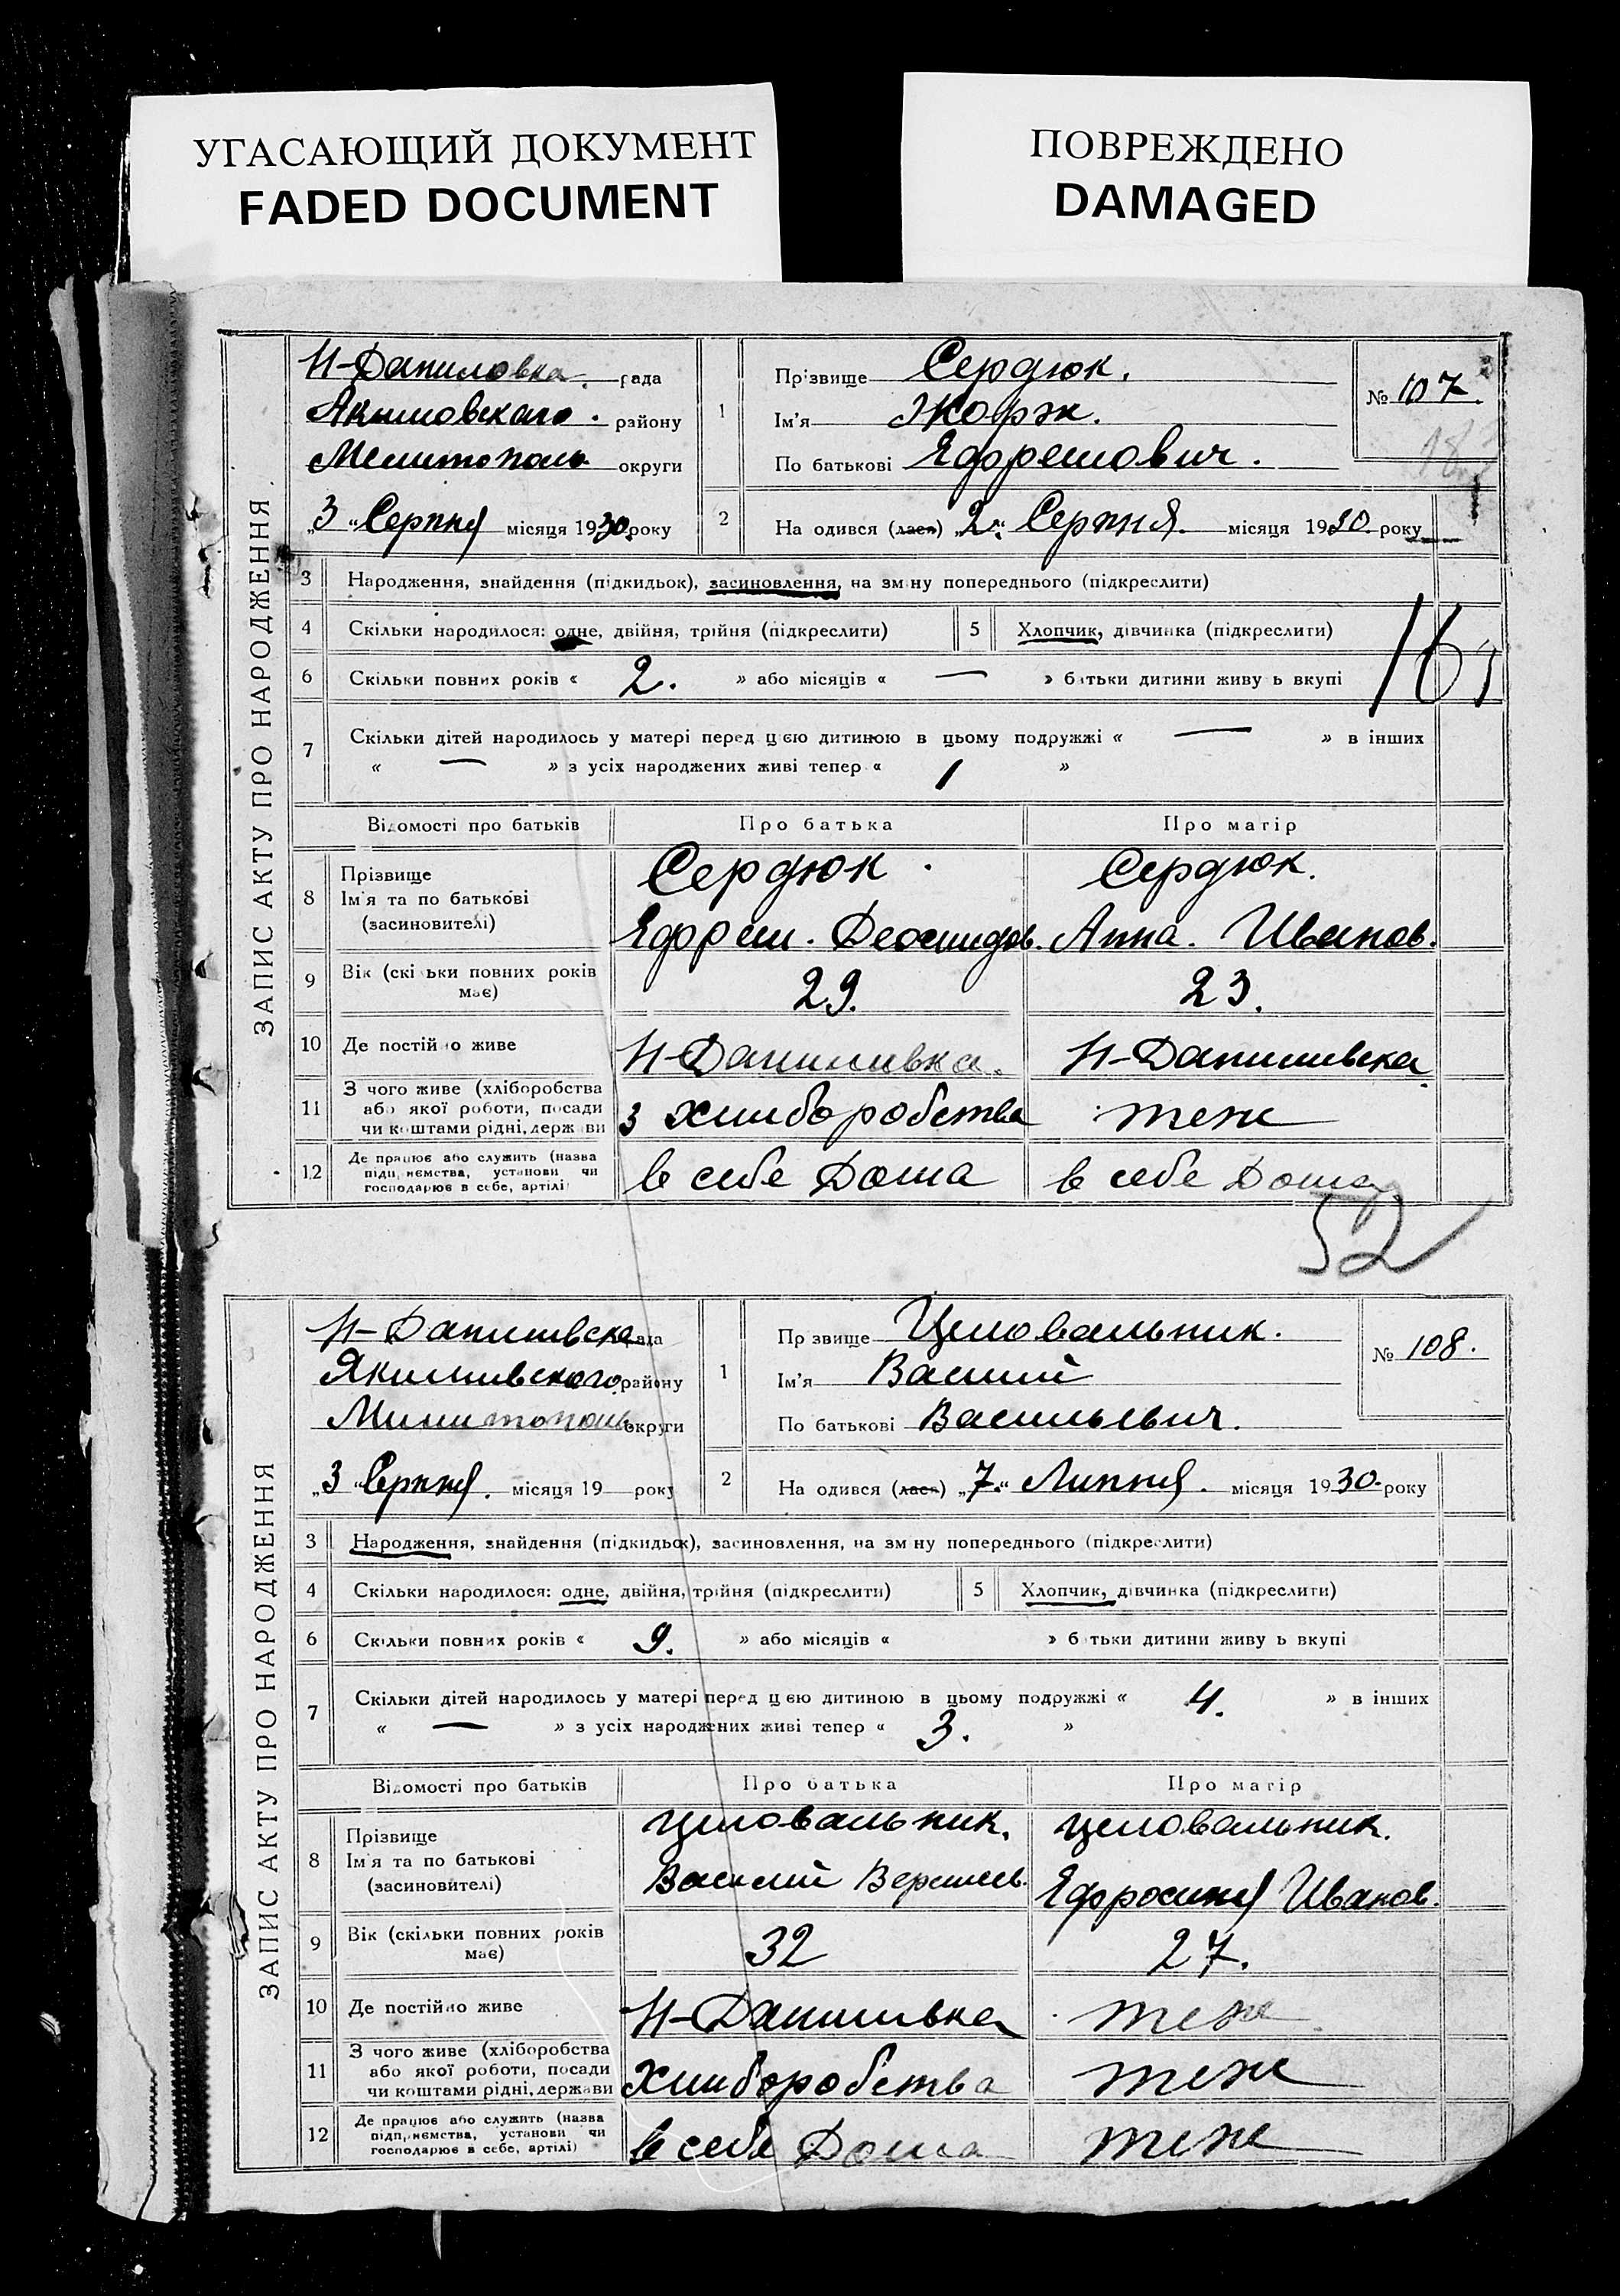 УГАСАЮЩИЙ ДОКУМЕНТ
FADED DOCUMENT
ПОВРЕЖДЕНО
DAMAGED
ЗАПИС АКТУ ПРО НАРОДЖЕННЯ
Н-Даниловка рада
Акимовскаго. району
Мелитополь округи
„3" Серпня місяця 1930 року
1
Прізвище Сердюк.
Ім'я Жорж.
По батькові Ефремович.
№ 107.
2
На одився (лась) „2" Серпня. місяця 1930 року
3 Народження, знайдення (підкидьок), засиновлення, на зм ну попереднього (підкреслити)
4 Скільки народилося: одне, двійня, трійня (підкреслити) 5 Хлопчик, дівчинка (підкреслити)
6 Скільки повних років « 2. » або місяців « — » батьки дитини живу ь вкупі
7 Скільки дітей народилось у матері перед цією дитиною в цьому подружжі « — » в інших
« — » з усіх народжених живі тепер « 1 »
Відомості про батьків Про батька Про матір
8 Прізвище
Ім'я та по батькові
(засиновителі)
Сердюк.
Ефрем. Деомидов.
Сердюк.
Анна. Иванов.
9 Вік (скі ьки повних років має) 29. 23.
10 Де постійно живе Н-Данилівка. Н-Данилівка
11 З чого живе (хліборобства
або якої роботи, посади
чи коштами рідні, держ ви
з хліборобства теж
12 Де працює або служить (назва
підприємства, установи чи
господарює в себе, артілі)
в себе Дома в себе Дома
52
ЗАПИС АКТУ ПРО НАРОДЖЕННЯ
Н-Данилівка рада
Якимівского району
Милитополь округи
„3" Серпня. місяця 19 року
1
Пр звище Циловальник.
Ім'я Василій
По батькові Васильевич.
№ 108.
2
На одився (лась) „7" Липня. місяця 1930 року
3 Народження, знайдення (підкидьок), засиновлення, на зм ну попереднього (підкреслити)
4 Скільки народилося: одне, двійня, трійня (підкреслити) 5 Хлопчик, дівчинка (підкреслити)
6 Скільки повних років « 9. » або місяців « » б тьки дитини живу ь вкупі
7 Скільки дітей народилось у матері перед цією дитиною в цьому подружжі « 4. » в інших
« — » з усіх народжених живі тепер « 3. »
Відомості про батьків Про батька Про матір
8 Прізвище
Ім'я та по батькові
(засиновителі)
Циловальник.
Василий
Циловальник.
Ефросиня Иванов.
9 Вік (скільки повних років має) 32 27.
10 Де постійно живе Н-Данилівка теж
11 З чого живе (хліборобства
або якої роботи, посади
чи коштами рідні, держави
Хліборобства теж
12 Де працює або служить (назва
підприємства, установи чи
господарює в себе, артілі)
в себе Дома теж